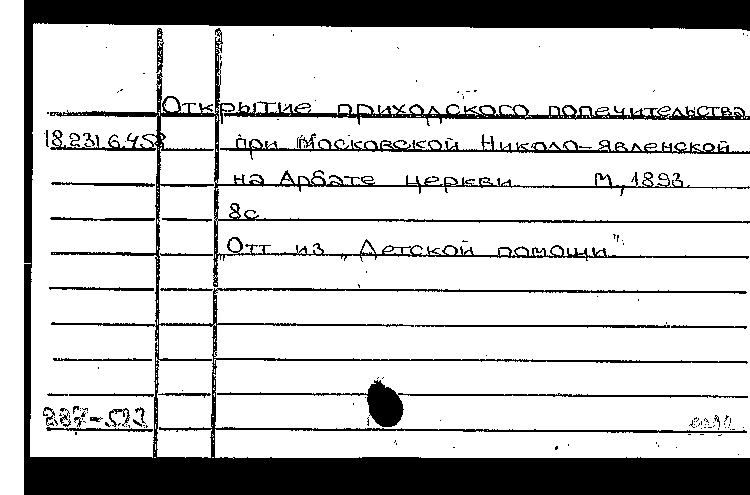 Открытие приходского попечительства
18.231.6.458 при Московской Николо-Явленской
на Арбате церкви М., 1893.
8с.
Отт. из „Детской помощи".
887-522